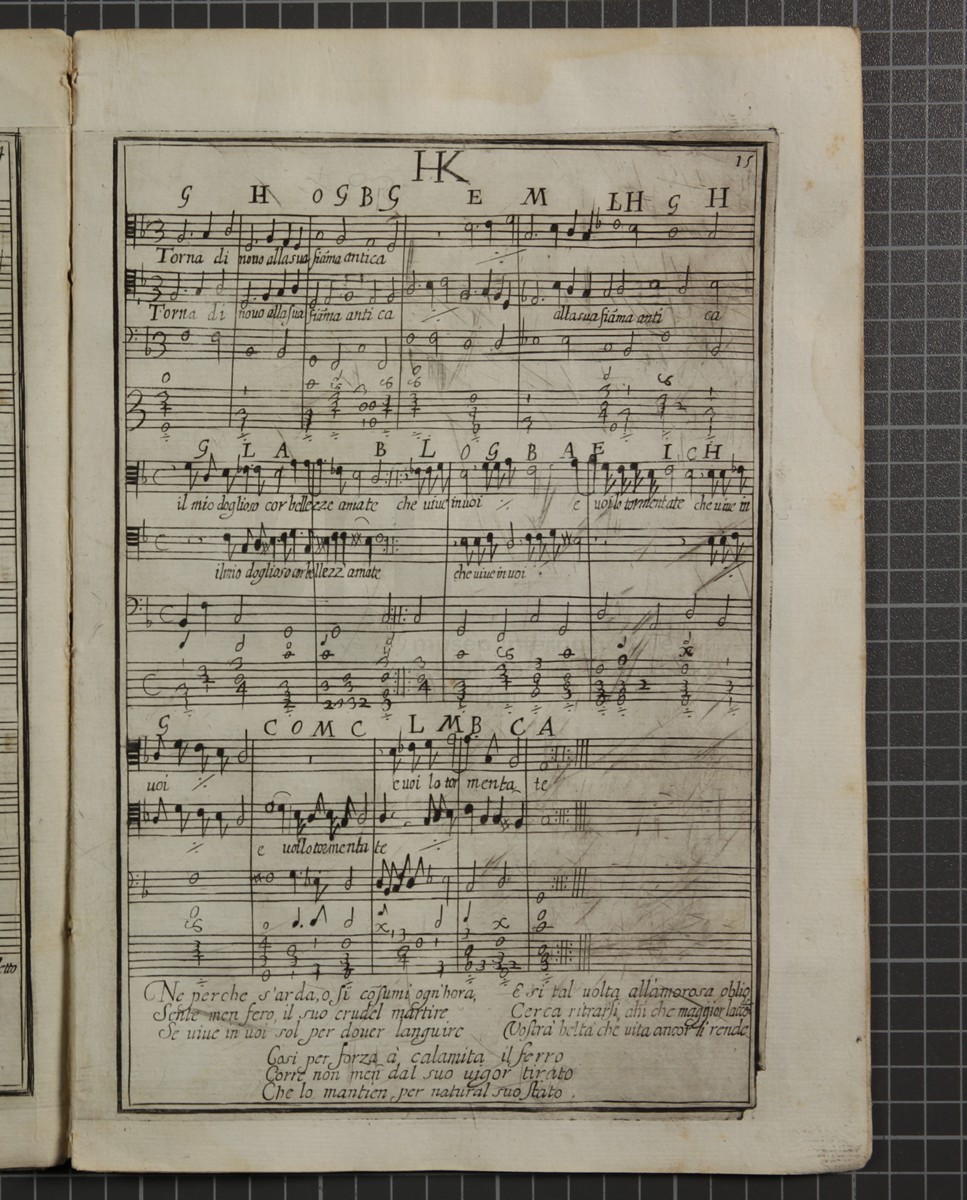 15
HK
G H O G B G E M L H G H
Torna di nouo alla sua fiāma antica
Torna di nouo alla sua fiāma anti ca alla sua fiāma anti ca
G L A B L O G B A E I C H
il mio doglioso cor bellezze amate che uiue in uoi e uoi lo tormentate che uiue in
il mio doglioso cor bellezz amate che uiue in uoi
G C O M C L M B C A
uoi e uoi lo tor menta te
e uoi lo tormenta te
Ne perche s'arda, o si cosumi ogn'hora,
Sente men fero, il suo crudel martire
Se uiue in uoi sol per douer languire
E si tal uolta all'amorosa
Cerca ritrarsi, ahi che maggior
Vostra beltà che uita ancor li rende
Cosi per forza à calamita il ferro
Corre non men dal suo uigor tirato
Che lo mantien, per natural suo stato.